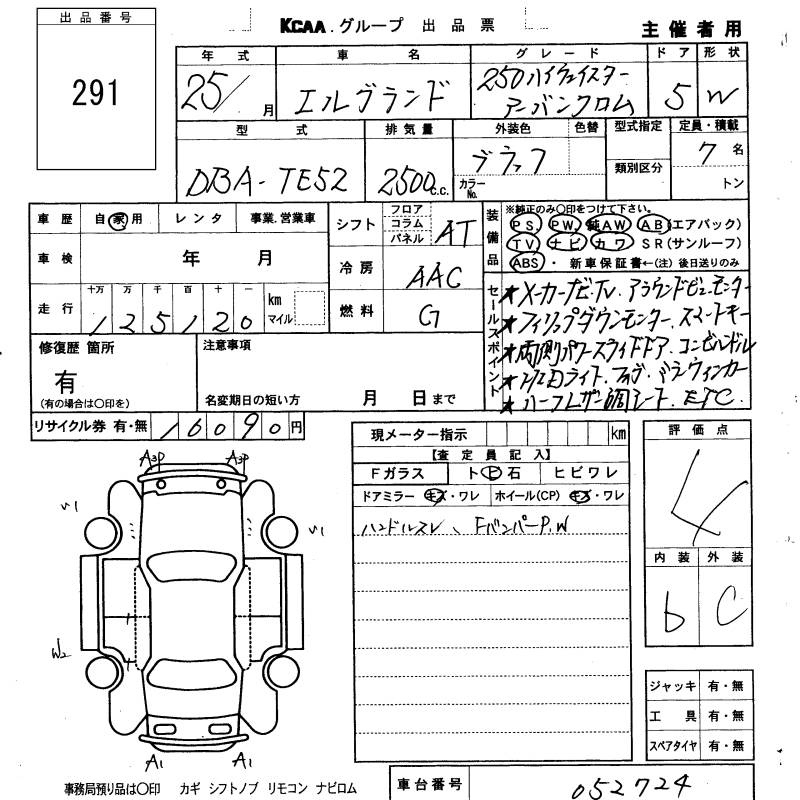 出品番号
291
KCAA.グループ 出品票
主催者用
年式 車名 グレード ドア 形状
25/ 月 エルグランド 250ハイウェイスター アーバンクロム 5 W
型式 排気量 外装色 色替 型式指定 定員・積載
DBA-TE52 2500 c.c. ブラック カラーNo. 類別区分 7 名 トン
車歴 自家用 レンタ 事業.営業車
シフト フロア コラム パネル AT
車検 年 月
冷房 AAC
走行 十万 万 千 百 十 一 125120 km マイル
燃料 G
装備品 ※純正のみ〇印をつけて下さい。
PS. PW. 純AW AB(エアバック)
TV ナビ カワ SR(サンルーフ)
ABS・ 新車保証書←(注)後日送りのみ
セールスポイント
★メーカーナビ.TV.アラウンドビューモニター
★フィリップダウンモニター.スマートキー
★両側パワースライドドア.コンビハンドル
ライト.フォグ.ウィンカー
★ハーフレザー調シート.ETC.
修復歴 箇所
有
(有の場合は〇印を)
注意事項
名変期日の短い方 月 日まで
リサイクル券 有・無 16090円
現メーター指示 km
【査定員記入】
Fガラス ト㋪石 ヒビワレ
ドアミラー キズ・ワレ ホイール(CP) キズ・ワレ
ハンドルスレ、FバンパーP.W
評価点
4
内装 外装
b C
A3P A3P
W2
A1 A1
ジャッキ 有・無
工具 有・無
スペアタイヤ 有・無
事務局預り品は〇印 カギ シフトノブ リモコン ナビロム
車台番号 052724